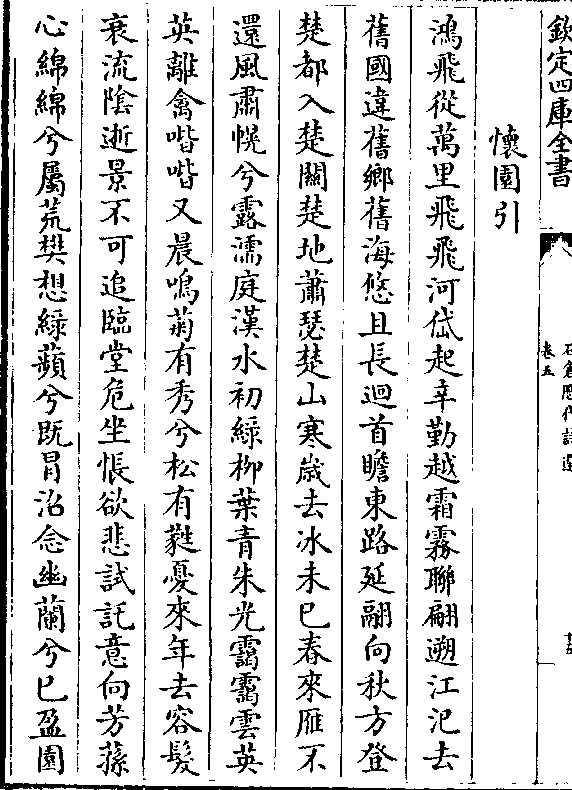 欽定四庫全書
石倉歷代詩選
卷五
懷園引
鴻飛從萬里飛飛河岱起辛勤越霜霧聯翩遡江汜去
舊國違舊鄉舊海悠且長迴首瞻東路延翮向秋方登
楚都入楚關楚地蕭瑟楚山寒歲去冰未已春來雁不
還風肅幌兮露濡庭漢水初綠柳葉青朱光靄靄雲英
英離禽喈喈又晨鳴菊有秀兮松有蕤憂來年去容髮
衰流陰逝景不可追臨堂危坐悵欲悲試託意向芳蓀
心綿綿兮屬荒樊想綠蘋兮既冒沼念幽蘭兮已盈園